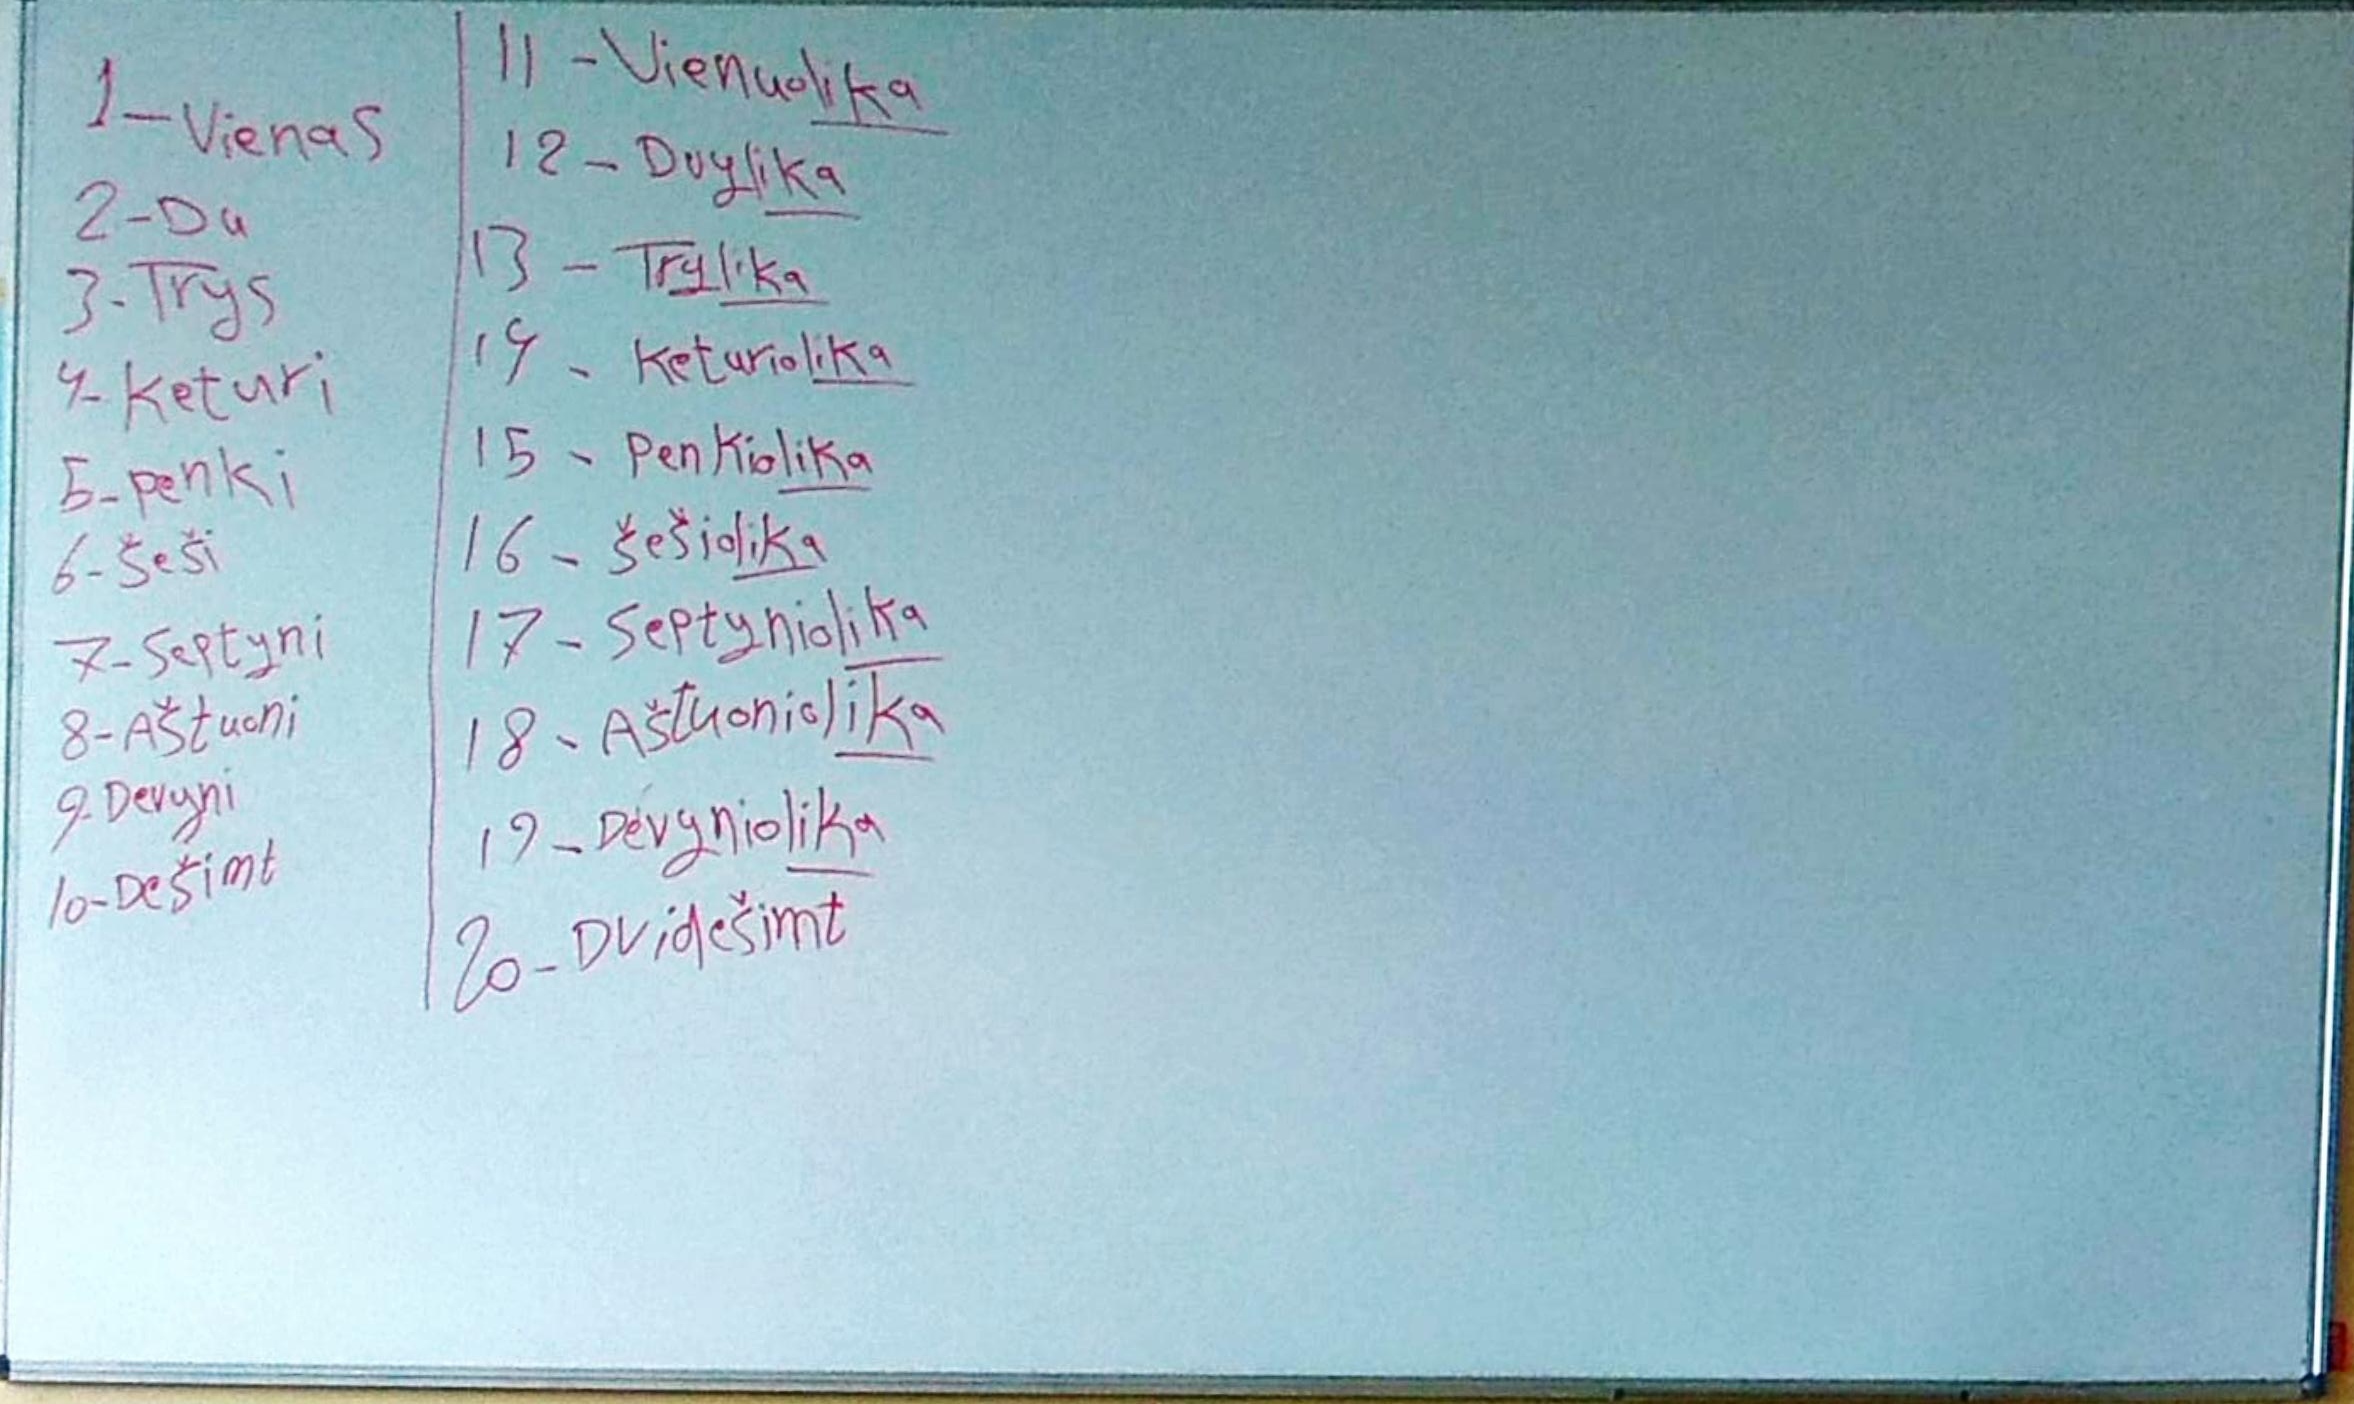 1-Vienas
2-Du
3-Trys
4-Keturi
5-penki
6-šeši
7-Septyni
8-Aštuoni
9-Devyni
10-Dešimt
11-Vienuolika
12-Dvylika
13-Trylika
14-Keturiolika
15-Penkiolika
16-šešiolika
17-Septyniolika
18-Aštuoniolika
19-Devyniolika
20-Dvidešimt